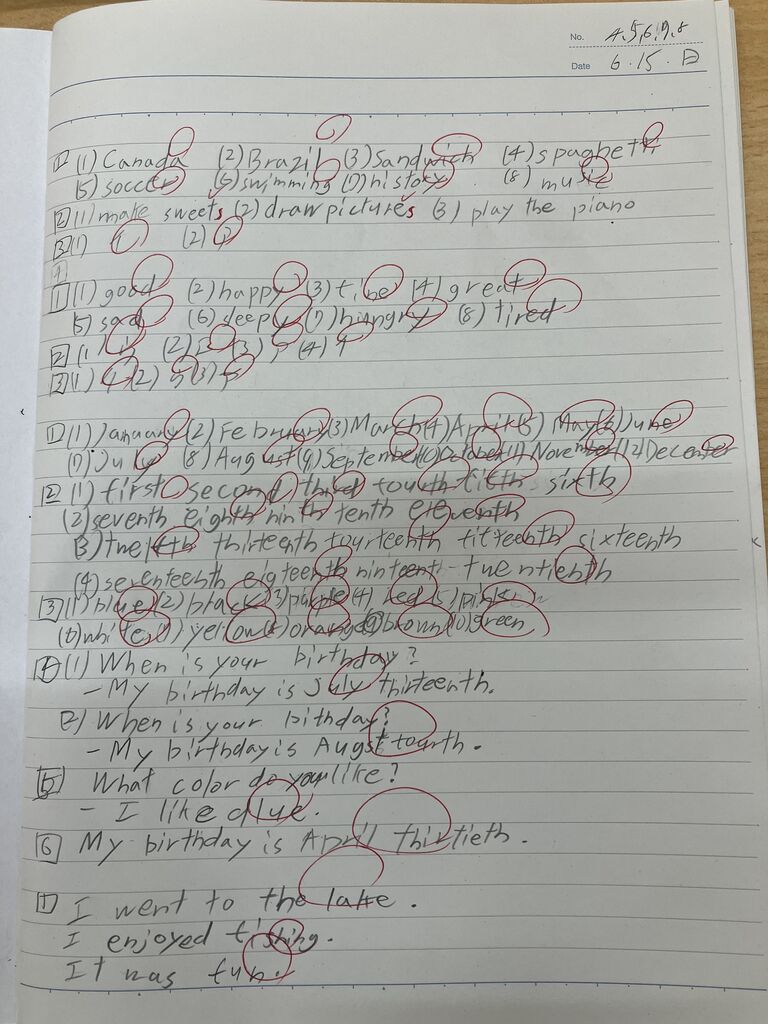 No. 4.5.6.7.8
Date 6.15.日
1 (1) Canada (2) Brazil (3) Sandwich (4) spaghetti
(5) soccer (6) swimming (7) history (8) music
2 (1) make sweets (2) draw pictures (3) play the piano
3 (1) (2)
1 (1) good (2) happy (3) fine (4) great
(5) sad (6) sleepy (7) hungry (8) tired
2 (1) (2) (3) (4)
3 (1) (2) (3)
1 (1) January (2) February (3) March (4) April (5) May (6) June
(7) July (8) August (9) September (10) October (11) November (12) December
2 (1) first second third fourth fifth sixth
(2) seventh eighth ninth tenth eleventh
(3) twelfth thirteenth fourteenth fifteenth sixteenth
(4) seventeenth eigteenth ninteent twentienth
3 (1) blue (2) black (3) purple (4) red (5) pink
(6) white (7) yellow (8) orange (9) brown (10) green
4 (1) When is your birthday?
- My birthday is July thirteenth.
2) When is your bithday?
- My birthday is Augst fourth.
5 What color do you like?
- I like blue.
6 My birthday is April thirtieth.
1 I went to the lake.
I enjoyed fishing.
It was fun.